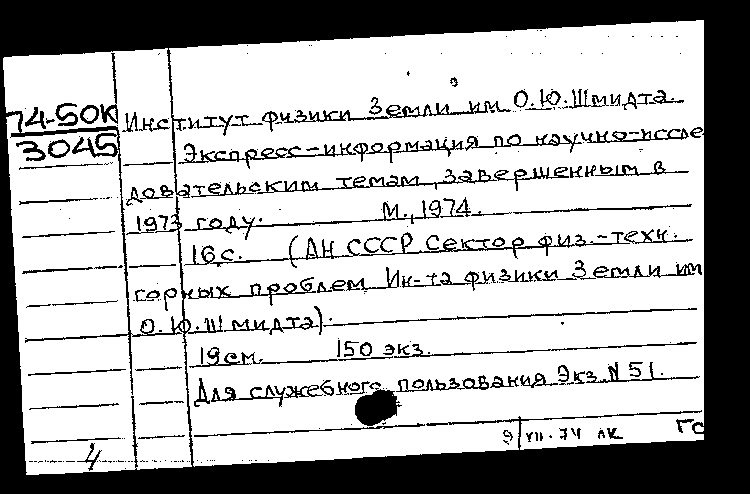 74-50К
3045
Институт физики Земли им О.Ю.Шмидта.
Экспресс-информация по научно-иссле
довательским темам, завершенным в
1973 году. М., 1974.
16с. (АН СССР Сектор физ.-техн.
горных проблем Ин-та физики Земли им
О.Ю.Шмидта).
19см. 150 экз.
Для служебного пользования Экз. N 51.
9/VII-74 ЛК ГС
4